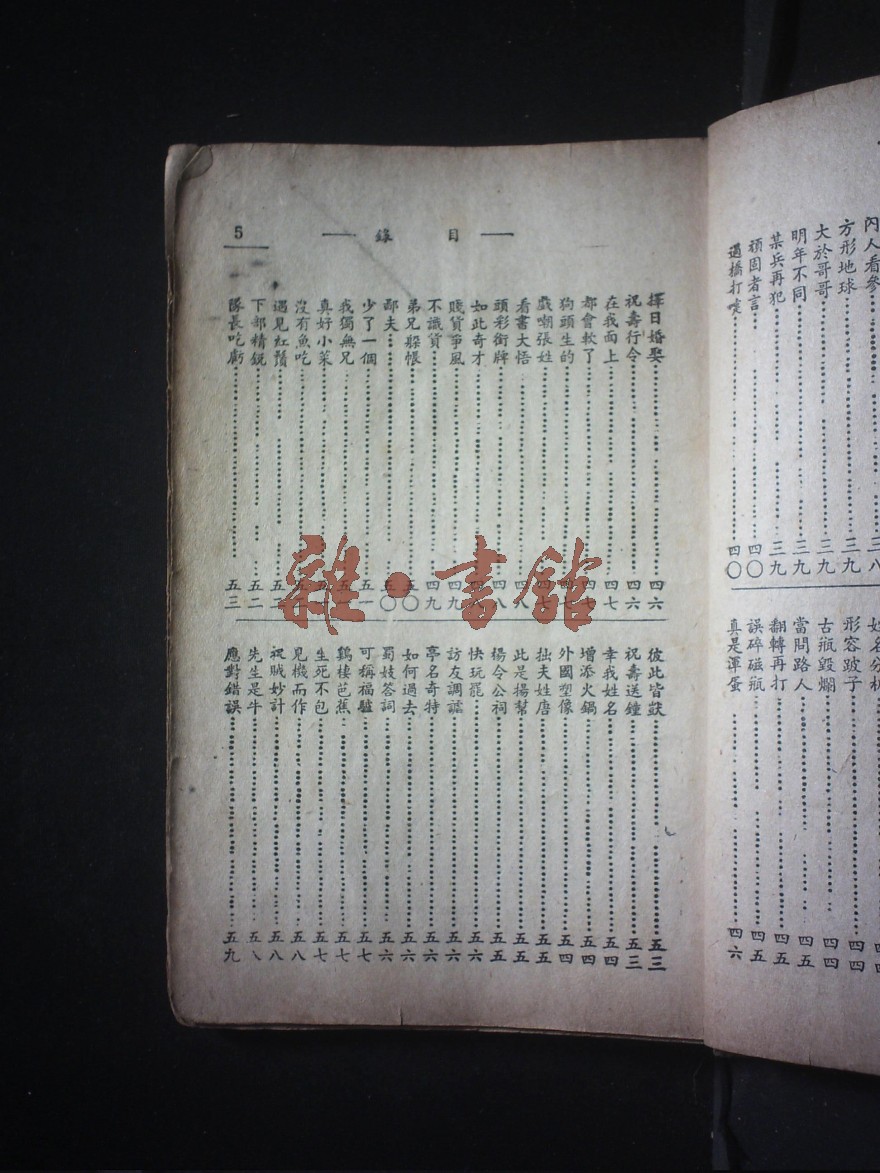 內人看參………三八
方形地球………三九
大於哥哥………三九
明年不同………三九
某兵再犯………三九
頑固者言………四〇
過橋打嚏………四〇
形容跛子………四四
古瓶毀爛………四四
當問路人………四五
翻轉再打………四五
誤碎磁瓶………四五
真是渾蛋………四六
—目錄—
5
擇日婚娶………四六
祝壽行令………四六
在我面上………四七
都會軟了………四七
狗頭生的………四七
戲嘲張姓………四七
看書大悟………四八
頭彩銜牌………四八
如此奇才………四八
賤貨爭風………四九
不識貨………四九
弟兄躲帳………五〇
鄙夫………五〇
少了一個………五一
我獨無兄………五一
真好小菜………五一
沒有魚吃………五
遇見紅鬚………五二
下部精銳………五二
隊長吃虧………五三
彼此皆跌………五三
祝壽送鐘………五三
幸我姓名………五四
增添火鍋………五四
外國塑像………五四
拙夫姓唐………五五
此是揚幫………五五
楊令公祠………五五
快玩罷………五六
訪友調謔………五六
亭名奇特………五六
如何過去………五六
蜀妓答詞………五六
可稱福驢………五七
鷄棲芭蕉………五七
生死不包………五七
見機而作………五八
視賊妙計………五八
先生是牛………五八
應對錯誤………五九
雜·書館